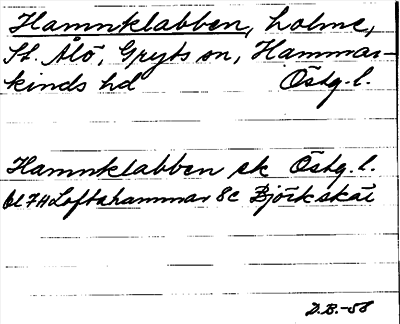 Hamnklabben, holme,
St. Ålö, Gryts sn, Hammar-
kinds hd Östg. l.
Hamnklabben ek Östg. l.
Bl 7H Loftahammar 8c Björkskär
D.B.-58